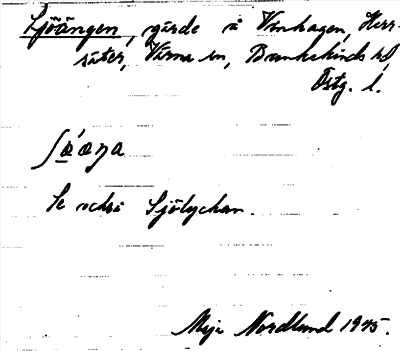 Sjöängen, gärde å Vinhagen, Herr-
säter, Värna sn, Bankekinds hd,
Östg. l.
Se också Sjölyckan.
Maja Nordlund 1945.